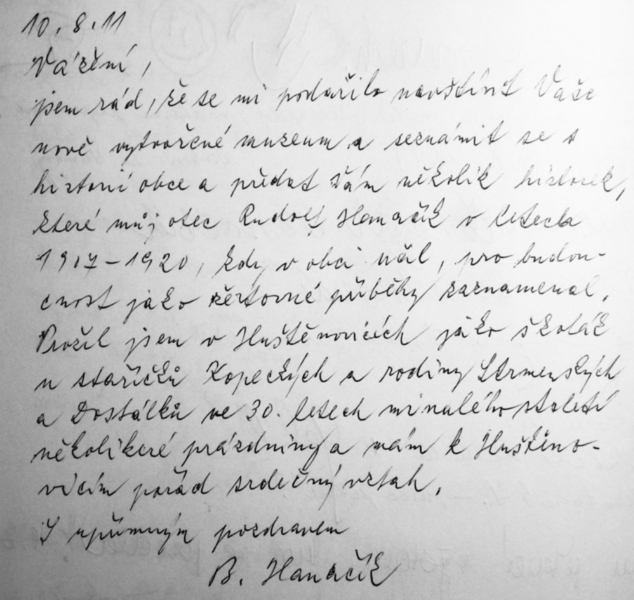 10. 8. 11
Vážení,
jsem rád, že se mi podařilo navštívit Vaše
nově vytvořené muzeum a seznámit se s
historií obce a předat Vám několik historek,
které můj otec Rudolf Hanačík v letech
1917-1920, kdy v obci žil, pro budou-
cnost jako žertovné příběhy zaznamenal.
Prožil jsem v Huštěnovicích jako školák
u staříčků Kopeckých a rodiny Strmenských
a Dostálků ve 30. letech minulého století
několikeré prázdniny a mám k Huštěno-
vicím pořád srdečný vztah.
S upřímným pozdravem
B. Hanačík